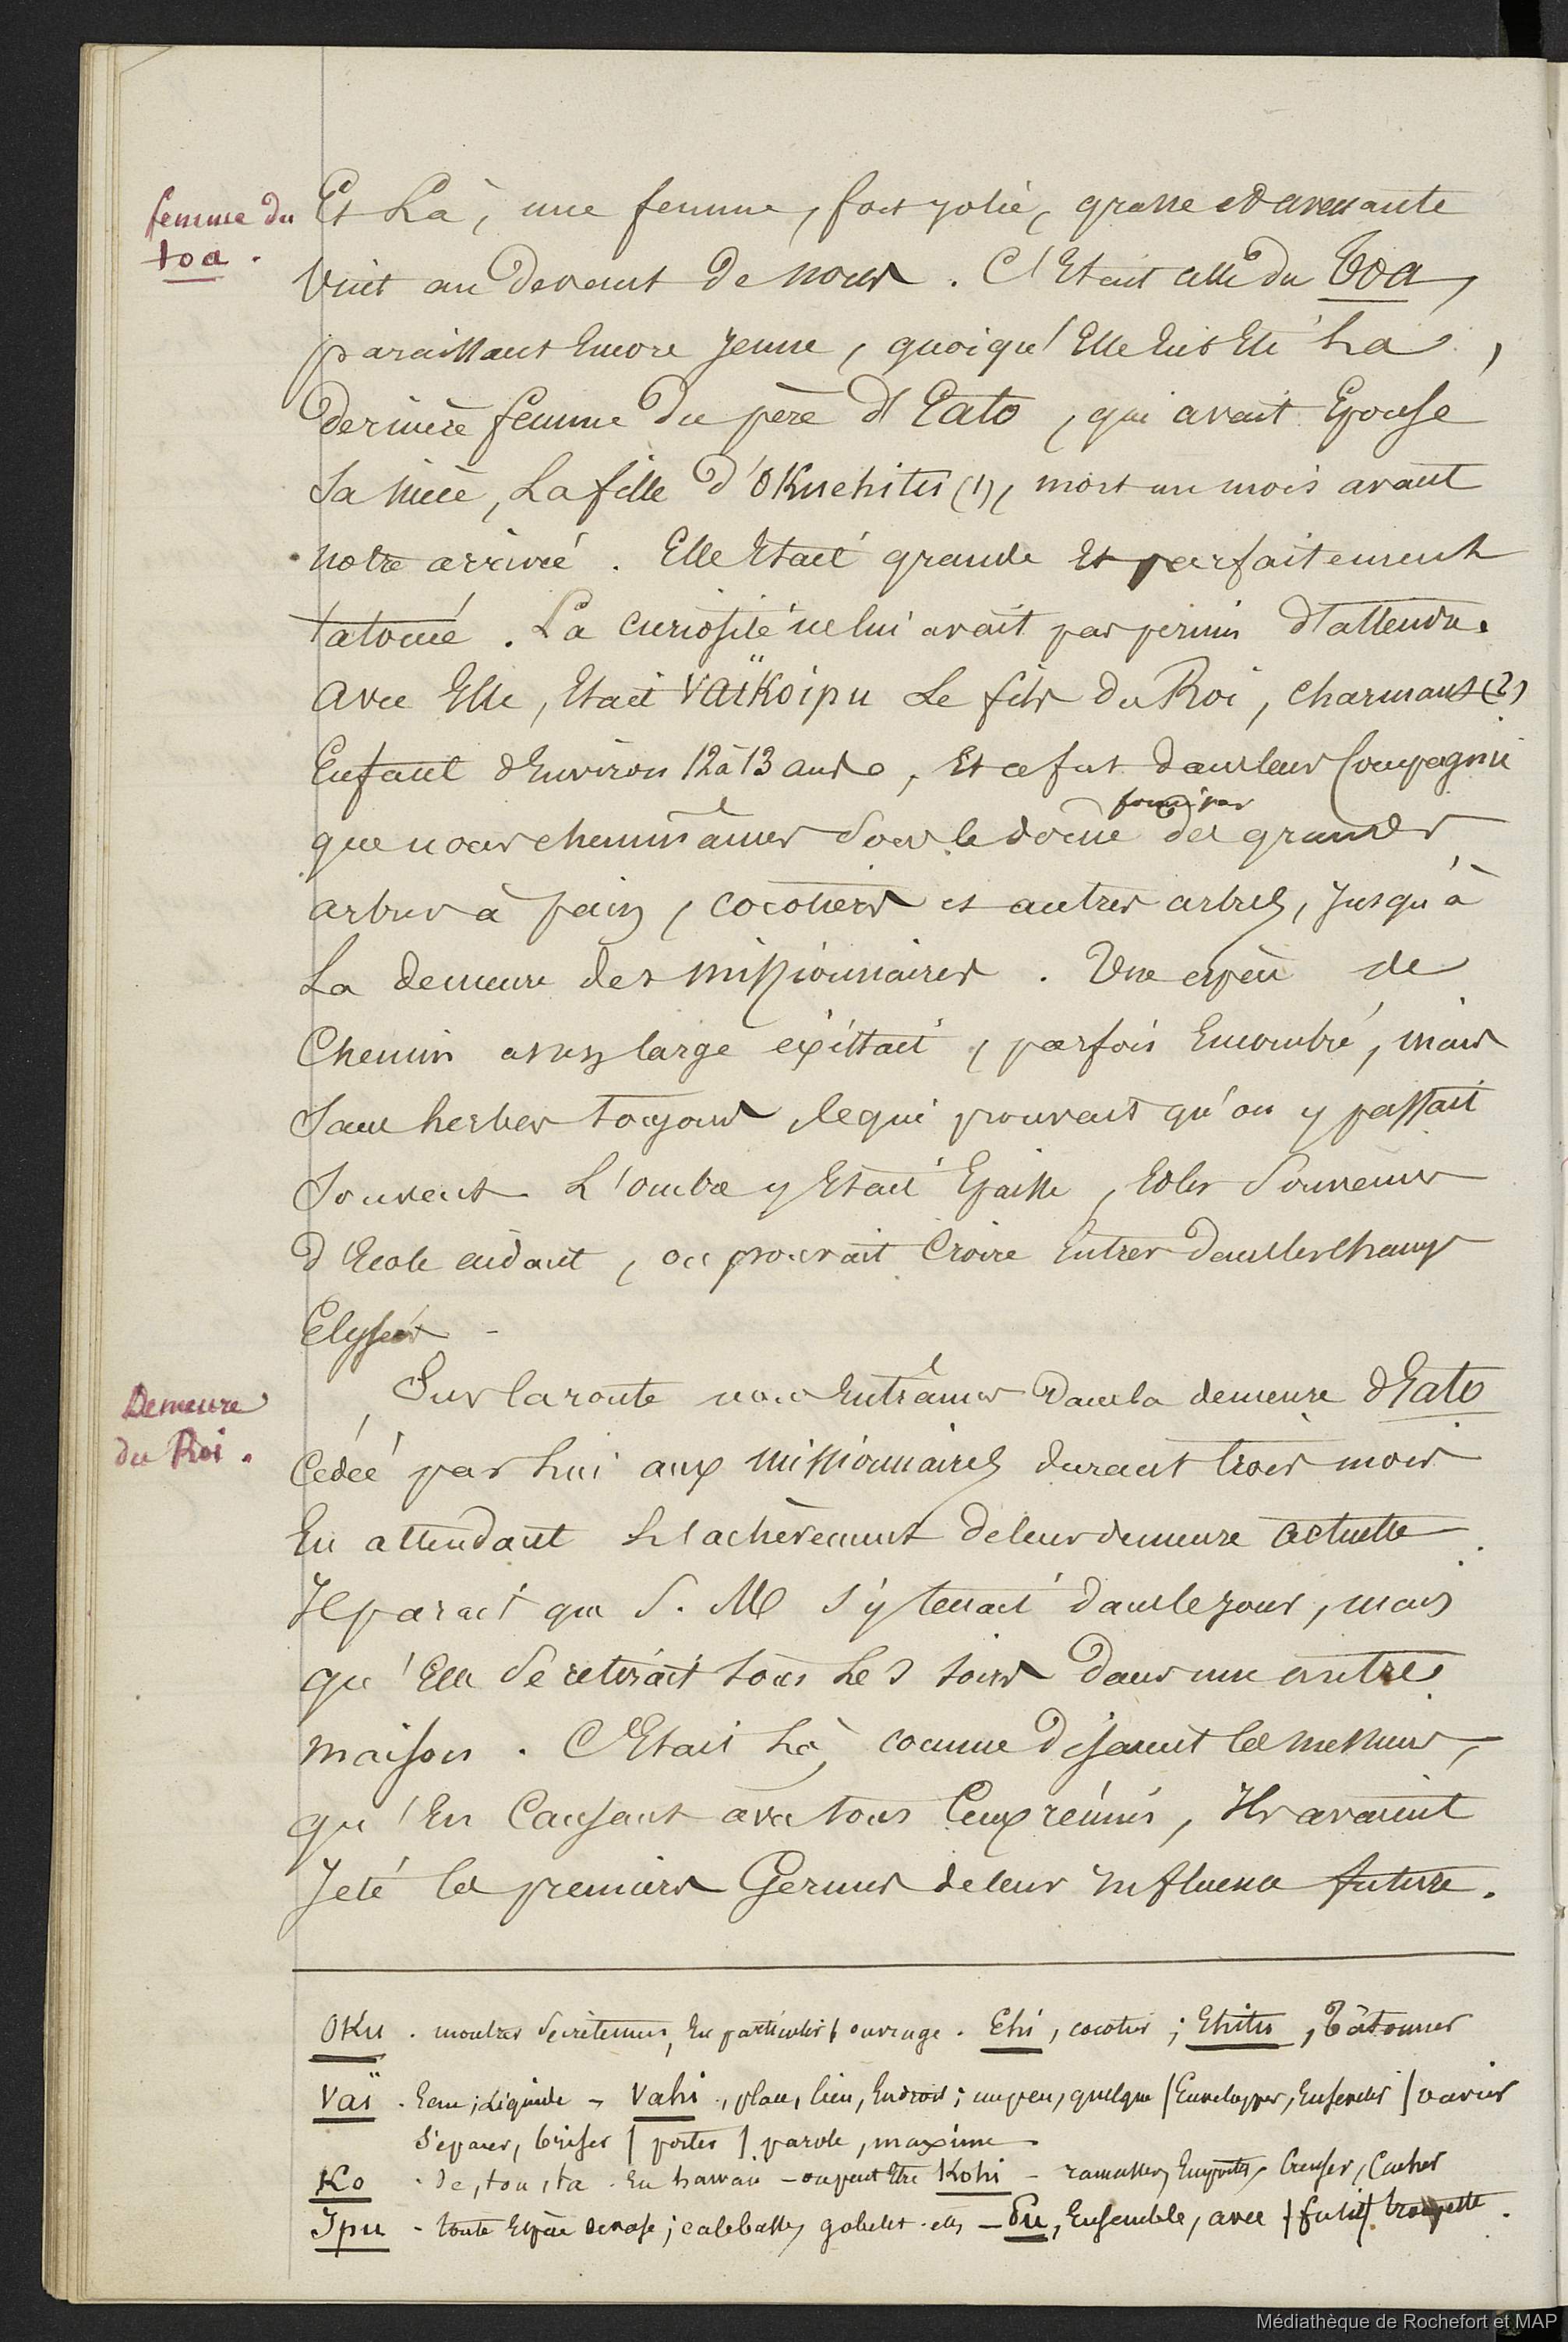 femme du
toa.
Et Là, une femme, fort jolie, grasse et avenante
vint au devant de nous. C'Etait celle du Toa,
paraissant Encore jeune, quoiqu'Elle Eut Eté La
dernière femme du père d'Eato, qui avait Epousé
sa nièce, La fille d'Okuehitu (1), mort un mois avant
notre arrivée. Elle Etait grande Et parfaitement
tatouée. La curiosité ne lui avait pas permis d'attendre.
avec Elle, Etait Vaïkoipu Le fils du Roi, charmant (2)
Enfant d'Environ 12 à 13 ans, Et ce fut dans leur Compagnie
que nous cheminâmes sous le dôme formé par des grands
arbres à pain, cocotiers et autres arbres, jusqu'à
La demeure des missionnaires. Une espèce de
Chemin assez large existait, parfois Encombré, mais
sans herbes toujours, ce qui prouvait qu'on y passait
souvent. L'ombre y Etait Epaisse, Et les souvenirs
d'Ecole aidant, on pouvait Croire Entrer dans les Champs
Elysées -
Demeure
du Roi.
Sur la route nous Entrâmes dans la demeure d'Eato
Cédée par Lui aux missionnaires durant trois mois
En attendant L'achèvement de leur demeure actuelle.
Il parait que S. M s'y tenait dans le jour, mais
qu'Elle se retirait tous Les soirs dans une autre
maison. C'Etait Là, comme disaient ces messieurs,
qu'En Causant avec tous Ceux réunis, Ils avaient
Jeté les premiers Germes de leur Influence future.
Oku. montrer secrètement, En particulier / ouvrage. Ehi, cocotier; Ehitu, Tâtonner
Vaï. Eau; Liquide - Vahi, place, lieu, Endroit; un peu, quelque / Envelopper, Ensevelir / varier
séparer, briser / porter / parole, maxime
Ko. de, ton, ta. En hawaii - ou peut Etre Kohi - ramasser, Emporter, Creuser, Cacher
Ipu - toute Espèce de vase; calebasse, gobelet. etc - Pu, Ensemble, avec / fusil / trompette.
Médiathèque de Rochefort et MAP